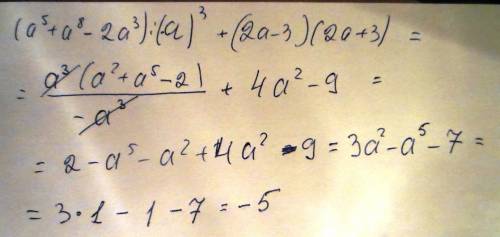 (a⁵+a⁸-2a³):(-a)³ + (2a-3)(2a+3) =
= a³(a²+a⁵-2)/-a³ + 4a²-9 =
= 2-a⁵-a²+4a²-9 = 3a²-a⁵-7 =
= 3·1-1-7 = -5